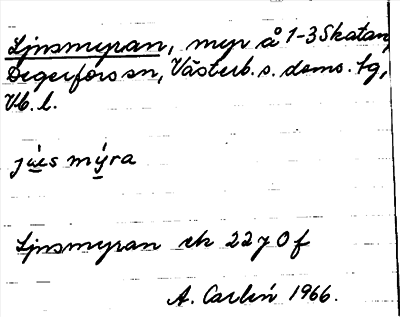 Ljusmyran, myr å 1-3 Skatan,
Degerfors sn, Västerb. s. doms. tg,
Vb. l.
jús mýra
Ljusmyran ek 22 J 0 f
A. Carlén 1966.